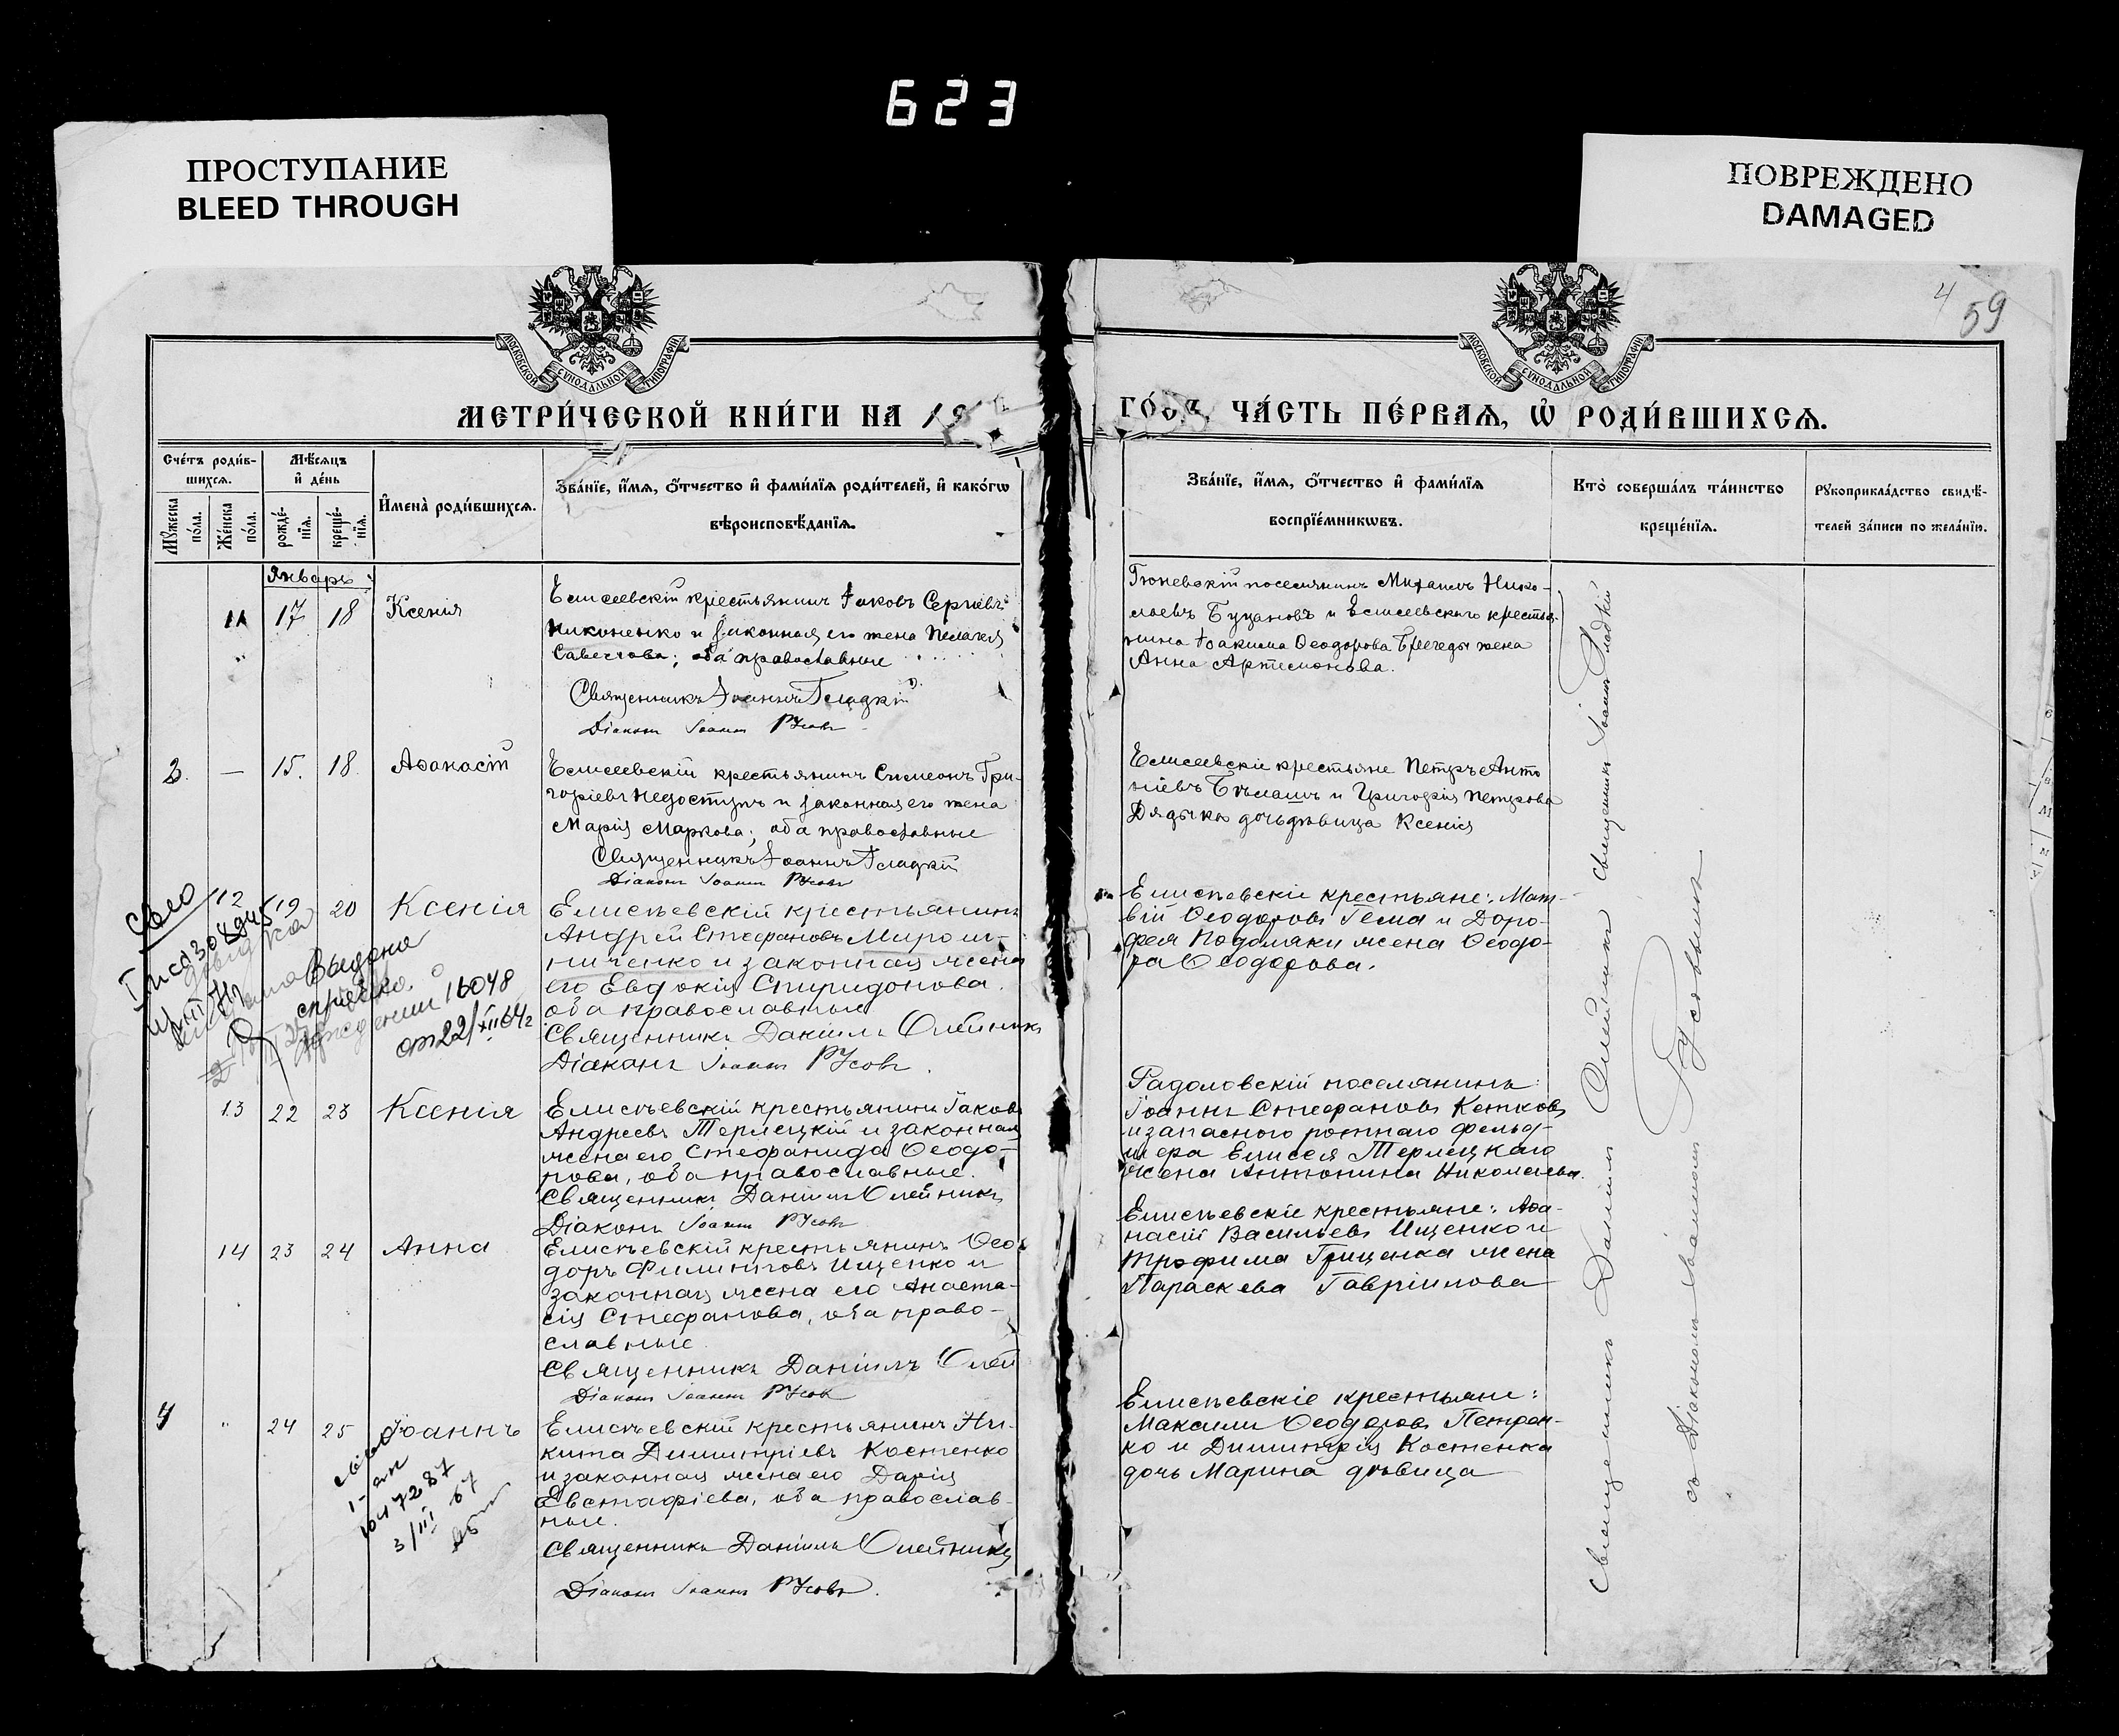 623
ПРОСТУПАНИЕ
BLEED THROUGH
ПОВРЕЖДЕНО
DAMAGED
4
59
МОСКОВСКОЙ СУНОДАЛЬНОЙ ТИПОГРАФІИ
МОСКОВСКОЙ СУНОДАЛЬНОЙ ТИПОГРАФІИ
МЕТРИ́ЧЕСКОЙ КНИ́ГИ НА 19
ГО́ДЪ, ЧА́СТЬ ПЕ́РВАЯ, Ѡ҆ РОДИ́ВШИХСЯ.
Сче́тъ роди́в-
шихся.
Мѣ́сяцъ
и҆ де́нь
Му́жеска
по́ла.
Же́нска
по́ла.
рожде́-
нїя.
креще́-
нїя.
И҆мена̀ роди́вшихся.
Зва́нїе, и҆́мя, ѻ҆́тчество и҆ фами́лїя роди́телей, и҆ како́гѡ
вѣроисповѣ́данїя.
Зва́нїе, и҆́мя, ѻ҆́тчество и҆ фами́лїя
воспрїе́мникѡвъ.
Кто̀ соверша́лъ та́инство
креще́нїя.
Рукоприкла́дство свидѣ́-
телей за́писи по жела́нїю.
Январь
11 17 18 Ксенія
Елисеевскій крестьянинъ Іаковъ Сергіевъ
Никоненко и законная его жена Пелагея
Савелова; оба православные
Священникъ Іоаннъ Гладкій
Діаконъ Іоаннъ Русовъ
Гюневскій поселянинъ Михаилъ Нико-
лаевъ Буцановъ и Елисеевскаго крестья-
нина Іоакима Ѳеодорова жена
Анна Артемонова.
3. — 15. 18. Аѳанасій
Елисеевскій крестьянинъ Симеонъ Гри-
горіевъ Недоступъ и законная его жена
Марія Маркова; оба православные
Священникъ Іоаннъ Гладкій
Діаконъ Іоаннъ Русовъ
Елисеевскіе крестьяне Петръ Анто
ніевъ и Григорія Петрова
Дядыка дочь дѣвица Ксенія
12 19 20 Ксенія
Елисѣевскій крестьянинъ
Андрей Стефановъ Мирош-
ниченко и законная жена
его Евдокія Спиридонова.
оба православные
Священникъ Даніилъ Олейникъ
Діаконъ Іоаннъ Русовъ.
Елисѣевскіе крестьяне: Мат-
вій Ѳеодоровъ Гема и Доро-
фея Подоляки жена Ѳеодо-
ра Ѳеодорова.
Выдана
справка
16048
от 22/XII 64г
13 22 23 Ксенія
Елисѣевскій крестьянинъ Іаковъ
Андреевъ Терлецкій и законная
жена его Стефанида Ѳеодо-
рова, оба православные.
Священникъ Даніилъ Олейникъ
Діаконъ Іоаннъ Русовъ
Радоловскій поселянинъ:
Іоаннъ Стефановъ Кетковъ
и запасного ротнаго фельд-
шера Елисея Терлецкаго
жена Антонина Николаева.
14 23 24 Анна
Елисѣевскій крестьянинъ Ѳео-
доръ Филипповъ Ищенко и
законная жена его Анаста-
сія Стефанова, оба право-
славные
Священникъ Даніилъ Олей
Діаконъ Іоаннъ Русовъ
Елисѣевскіе крестьяне: Аѳа-
насій Васильевъ Ищенко и
Трофима Гриценка жена
Параскева Гавріилова
4 " 24 25 Іоаннъ
Елисѣевскій крестьянинъ Ни-
кита Димитріевъ Костенко
и законная жена его Дарія
Евстафіева, оба православ-
ные.
Священникъ Даніилъ Олейникъ
Діаконъ Іоаннъ Русовъ.
Елисѣевскіе крестьяне:
Максимъ Ѳеодоровъ Петрен-
ко и Димитрія Костенка
дочь Марина дѣвица
3/III 67
Священникъ Даніилъ Олейникъ священникъ Іоаннъ Гладкій
съ Діакономъ Іоанномъ Русовымъ